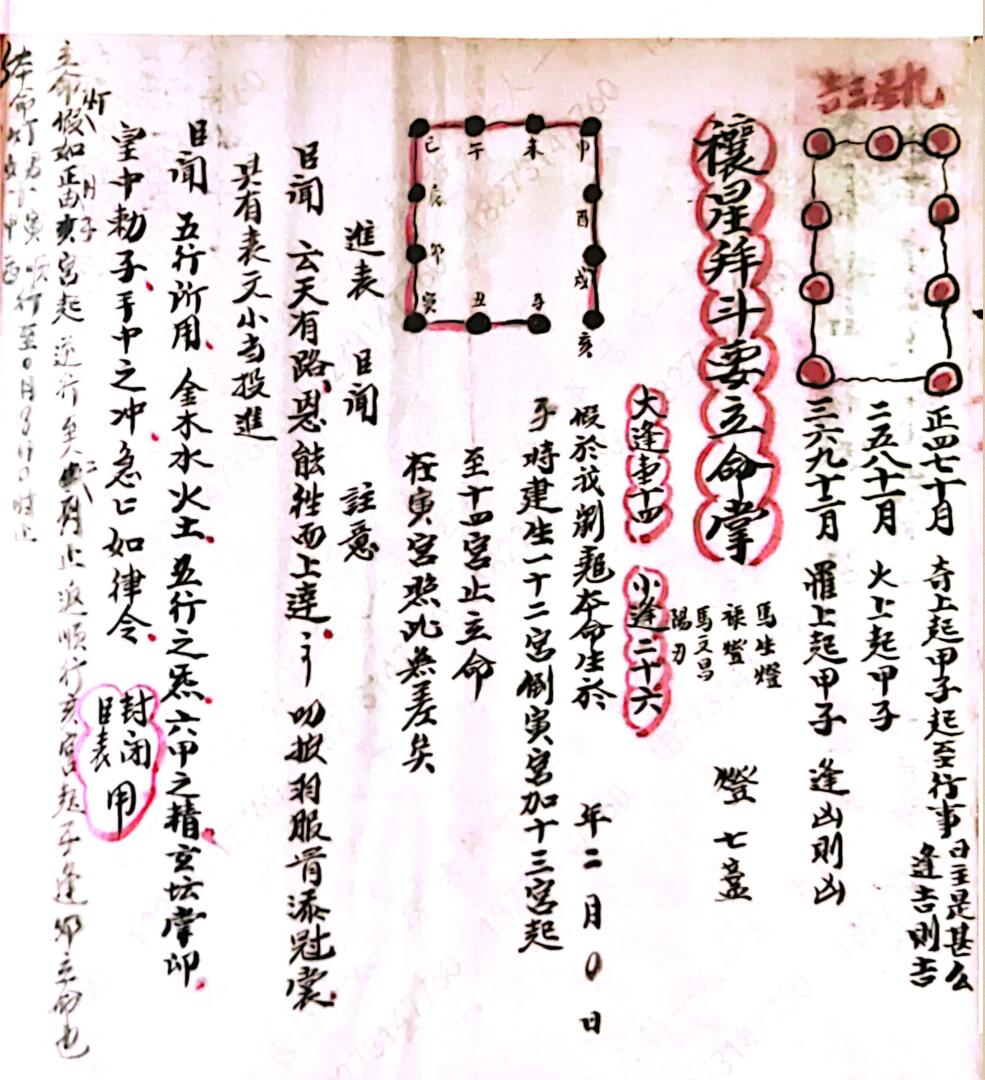 正四七十月 奇上起甲子起至行事日主是甚么逢吉則吉
二五八十一月 火上起甲子
三六九十二月 羅上起甲子 逢凶則凶
禳星拜斗要立命掌
馬生燈
祿燈
馬文昌
陽刃
燈七盞
大逢十四 小逢二十六
巳 午 未 申
辰 酉
卯 戌
寅 丑 子 亥
假於我劉 本命生於 年二月〇日
子時建生一十二宮倒寅宮加十三宮起
至十四宮止立命
在寅宮照此無差矣
進表 臣聞 註意
臣聞 云天有路恩能牲而上達 叨披羽服骨添冠裳
具有表文小当投進
臣聞 五行所用 金木水火土 五行之炁六甲之精玄坛掌印
皇中勅子手中之冲急匕如律令
封闭臣表用
立命假如正月亥宮起 逆行至 止返順行亥宮起子逢卯立命也
本命灯